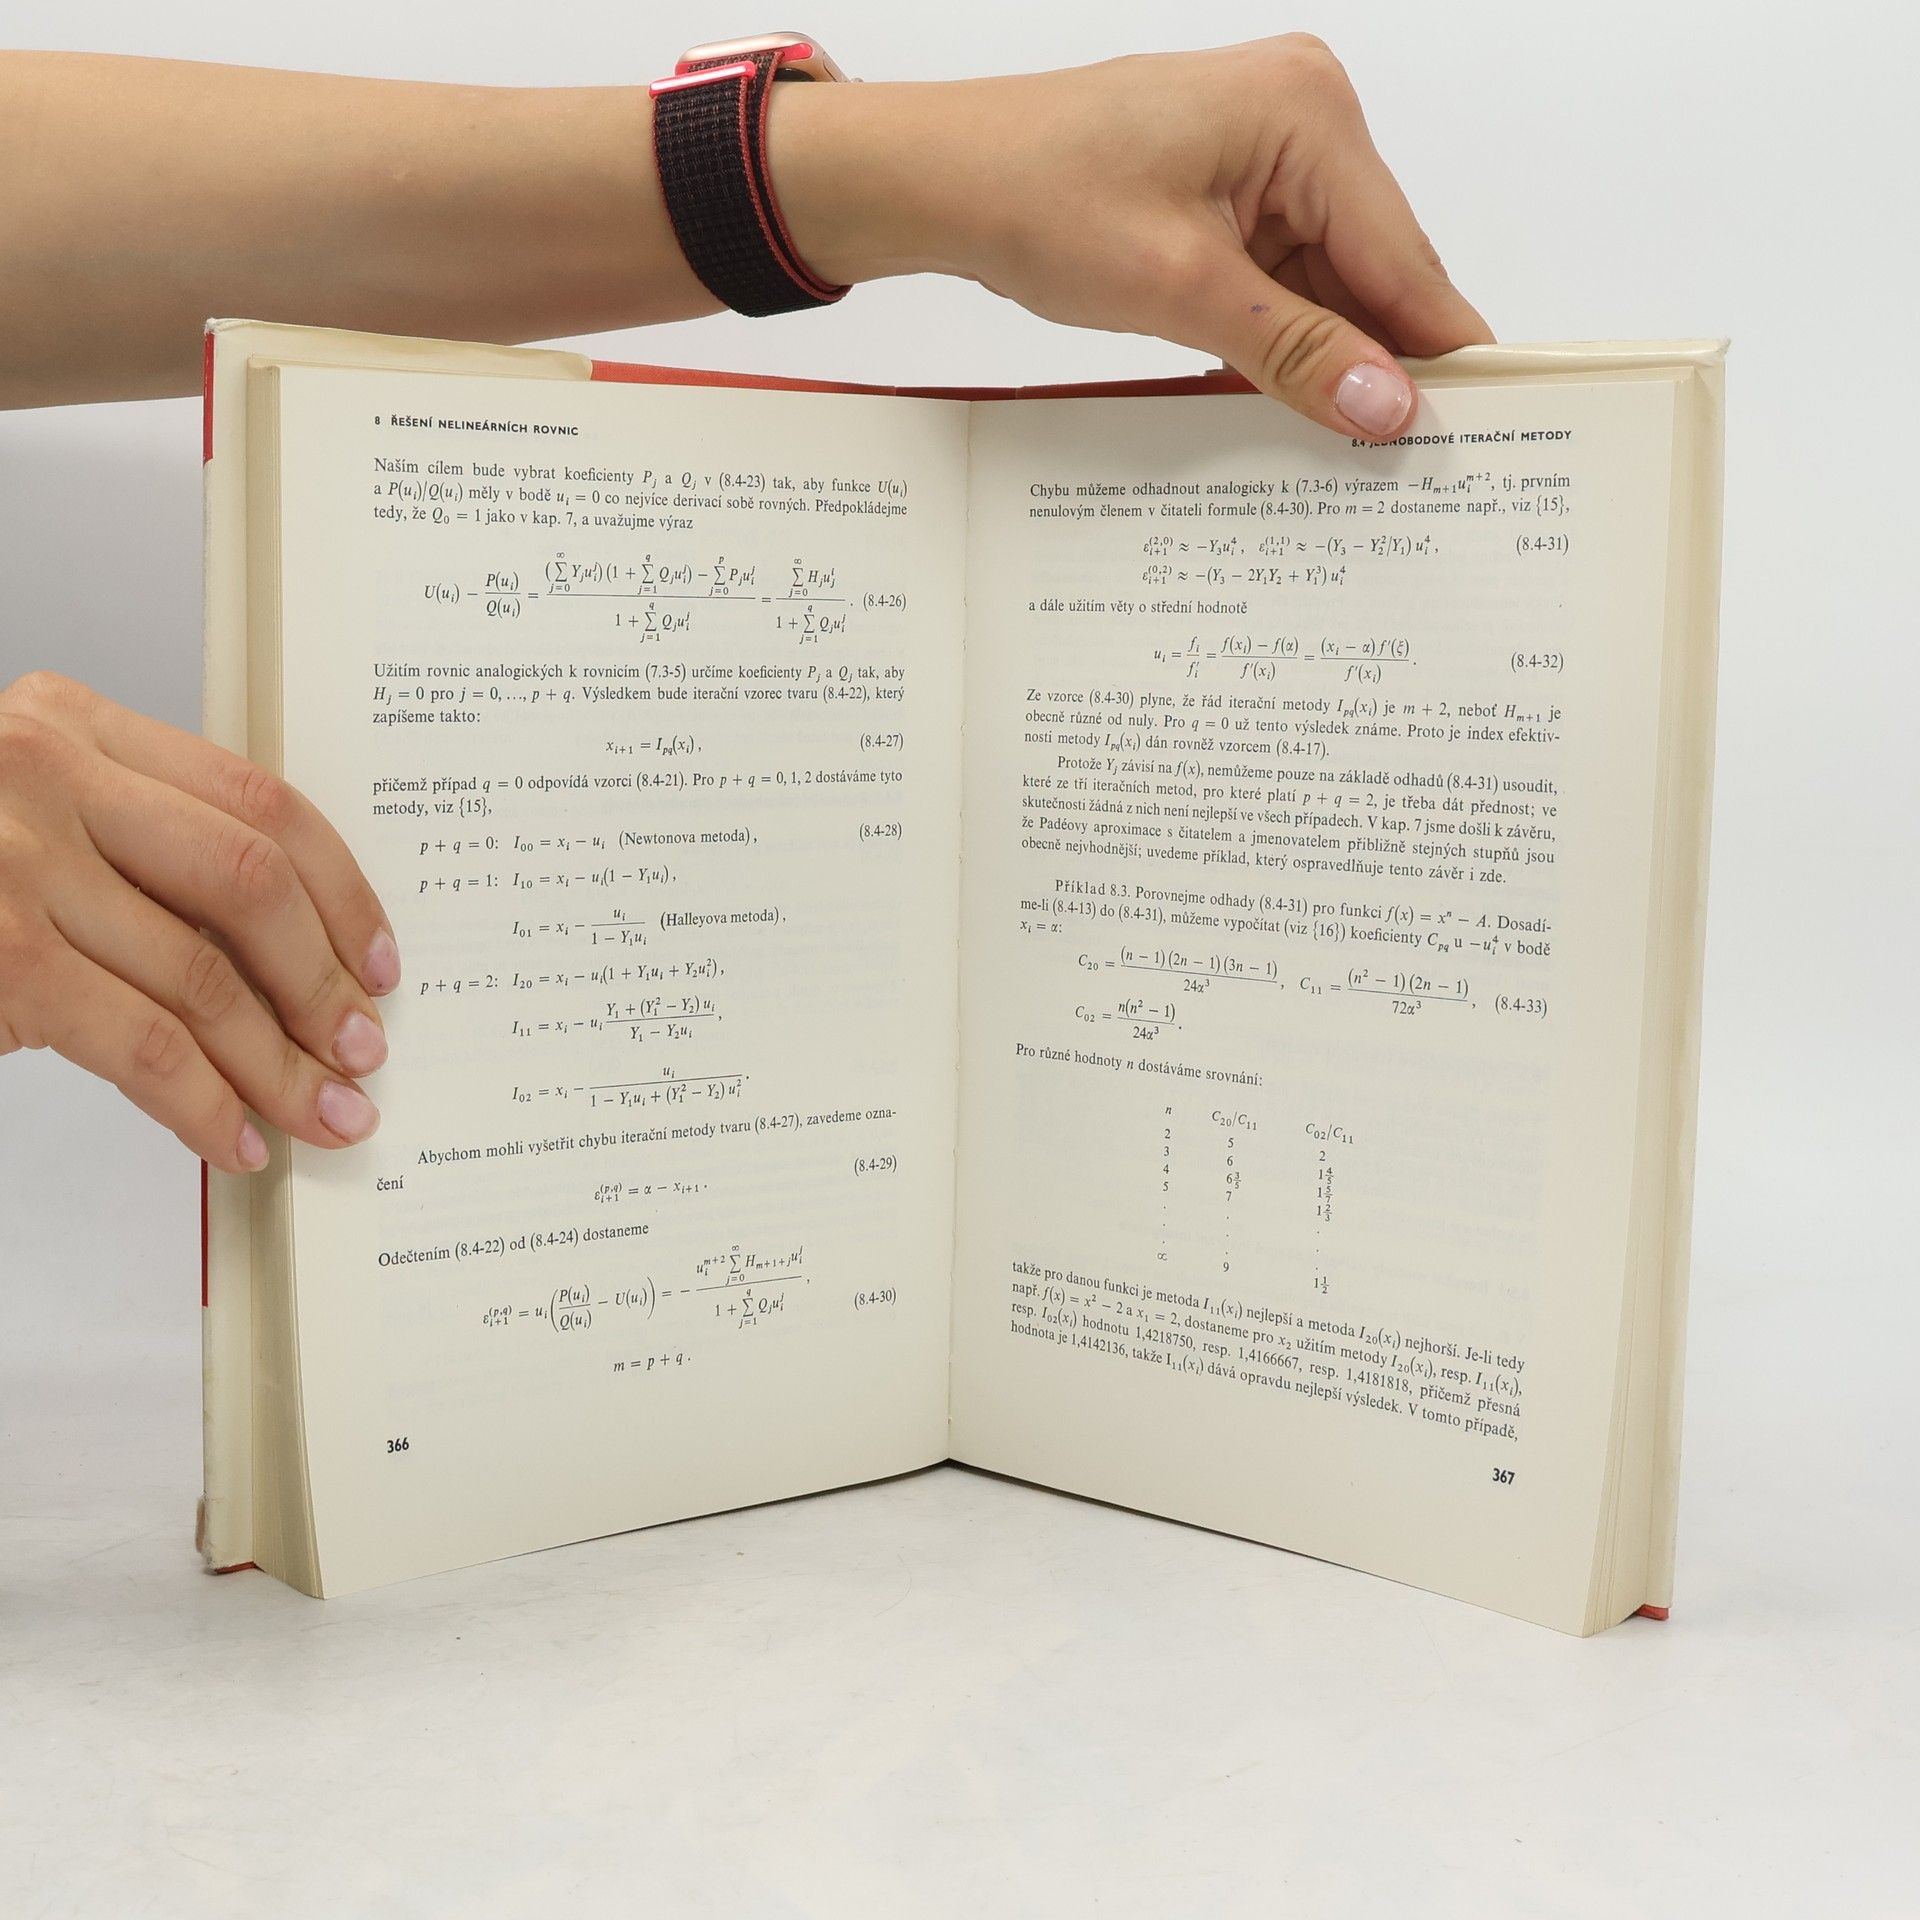 8 ŘEŠENÍ NELINEÁRNÍCH ROVNIC
Naším cílem bude vybrat koeficienty P_j a Q_j v (8.4-23) tak, aby funkce U(u_i)
a P(u_i)/Q(u_i) měly v bodě u_i = 0 co nejvíce derivací sobě rovných. Předpokládejme
tedy, že Q_0 = 1 jako v kap. 7, a uvažujme výraz
U(u_i) − P(u_i)/Q(u_i) = ((∑_{j=0}^{∞} Y_j u_i^j)(1 + ∑_{j=1}^{q} Q_j u_i^j) − ∑_{j=0}^{p} P_j u_i^j)/(1 + ∑_{j=1}^{q} Q_j u_i^j) = (∑_{j=0}^{∞} H_j u_j^i)/(1 + ∑_{j=1}^{q} Q_j u_i^j) . (8.4-26)
Užitím rovnic analogických k rovnicím (7.3-5) určíme koeficienty P_j a Q_j tak, aby
H_j = 0 pro j = 0, ..., p + q. Výsledkem bude iterační vzorec tvaru (8.4-22), který
zapíšeme takto:
x_{i+1} = I_{pq}(x_i) , (8.4-27)
přičemž případ q = 0 odpovídá vzorci (8.4-21). Pro p + q = 0, 1, 2 dostáváme tyto
metody, viz {15},
p + q = 0: I_{00} = x_i − u_i (Newtonova metoda) , (8.4-28)
p + q = 1: I_{10} = x_i − u_i(1 − Y_1 u_i) ,
I_{01} = x_i − u_i/(1 − Y_1 u_i) (Halleyova metoda) ,
p + q = 2: I_{20} = x_i − u_i(1 + Y_1 u_i + Y_2 u_i^2) ,
I_{11} = x_i − u_i (Y_1 + (Y_1^2 − Y_2) u_i)/(Y_1 − Y_2 u_i) ,
I_{02} = x_i − u_i/(1 − Y_1 u_i + (Y_1^2 − Y_2) u_i^2) .
Abychom mohli vyšetřit chybu iterační metody tvaru (8.4-27), zavedeme ozna-
čení (8.4-29)
ε_{i+1}^{(p,q)} = α − x_{i+1} .
Odečtením (8.4-22) od (8.4-24) dostaneme
ε_{i+1}^{(p,q)} = u_i (P(u_i)/Q(u_i) − U(u_i)) = − (u_i^{m+2} ∑_{j=0}^{∞} H_{m+1+j} u_i^j)/(1 + ∑_{j=1}^{q} Q_j u_i^j) , (8.4-30)
m = p + q .
366
8.4 OBODOVÉ ITERAČNÍ METODY
Chybu můžeme odhadnout analogicky k (7.3-6) výrazem −H_{m+1} u_i^{m+2}, tj. prvním
nenulovým členem v čitateli formule (8.4-30). Pro m = 2 dostaneme např., viz {15},
ε_{i+1}^{(2,0)} ≈ −Y_3 u_i^4 , ε_{i+1}^{(1,1)} ≈ −(Y_3 − Y_2^2/Y_1) u_i^4 , (8.4-31)
ε_{i+1}^{(0,2)} ≈ −(Y_3 − 2Y_1 Y_2 + Y_1^3) u_i^4
a dále užitím věty o střední hodnotě
u_i = f_i/f_i' = (f(x_i) − f(α))/f'(x_i) = ((x_i − α) f'(ξ))/f'(x_i) . (8.4-32)
Ze vzorce (8.4-30) plyne, že řád iterační metody I_{pq}(x_i) je m + 2, neboť H_{m+1} je
obecně různé od nuly. Pro q = 0 už tento výsledek známe. Proto je index efektiv-
nosti metody I_{pq}(x_i) dán rovněž vzorcem (8.4-17).
Protože Y_j závisí na f(x), nemůžeme pouze na základě odhadů (8.4-31) usoudit,
které ze tří iteračních metod, pro které platí p + q = 2, je třeba dát přednost; ve
skutečnosti žádná z nich není nejlepší ve všech případech. V kap. 7 jsme došli k závěru,
že Padéovy aproximace s čitatelem a jmenovatelem přibližně stejných stupňů jsou
obecně nejvhodnější; uvedeme příklad, který ospravedlňuje tento závěr i zde.
Příklad 8.3. Porovnejme odhady (8.4-31) pro funkci f(x) = x^n − A. Dosadí-
me-li (8.4-13) do (8.4-31), můžeme vypočítat (viz {16}) koeficienty C_{pq} u −u_i^4 v bodě
x_i = α:
C_{20} = ((n − 1)(2n − 1)(3n − 1))/(24α^3) , C_{11} = ((n^2 − 1)(2n − 1))/(72α^3) , (8.4-33)
C_{02} = (n(n^2 − 1))/(24α^3) .
Pro různé hodnoty n dostáváme srovnání:
n C_{20}/C_{11} C_{02}/C_{11}
2 5 2
3 6 1 4/5
4 6 3/5 1 5/7
5 7 1 2/3
. . .
. . .
∞ 9 1 1/2
takže pro danou funkci je metoda I_{11}(x_i) nejlepší a metoda I_{20}(x_i) nejhorší. Je-li tedy
např. f(x) = x^2 − 2 a x_1 = 2, dostaneme pro x_2 užitím metody I_{20}(x_i), resp. I_{11}(x_i),
resp. I_{02}(x_i) hodnotu 1,4218750, resp. 1,4166667, resp. 1,4181818, přičemž přesná
hodnota je 1,4142136, takže I_{11}(x_i) dává opravdu nejlepší výsledek. V tomto případě,
367